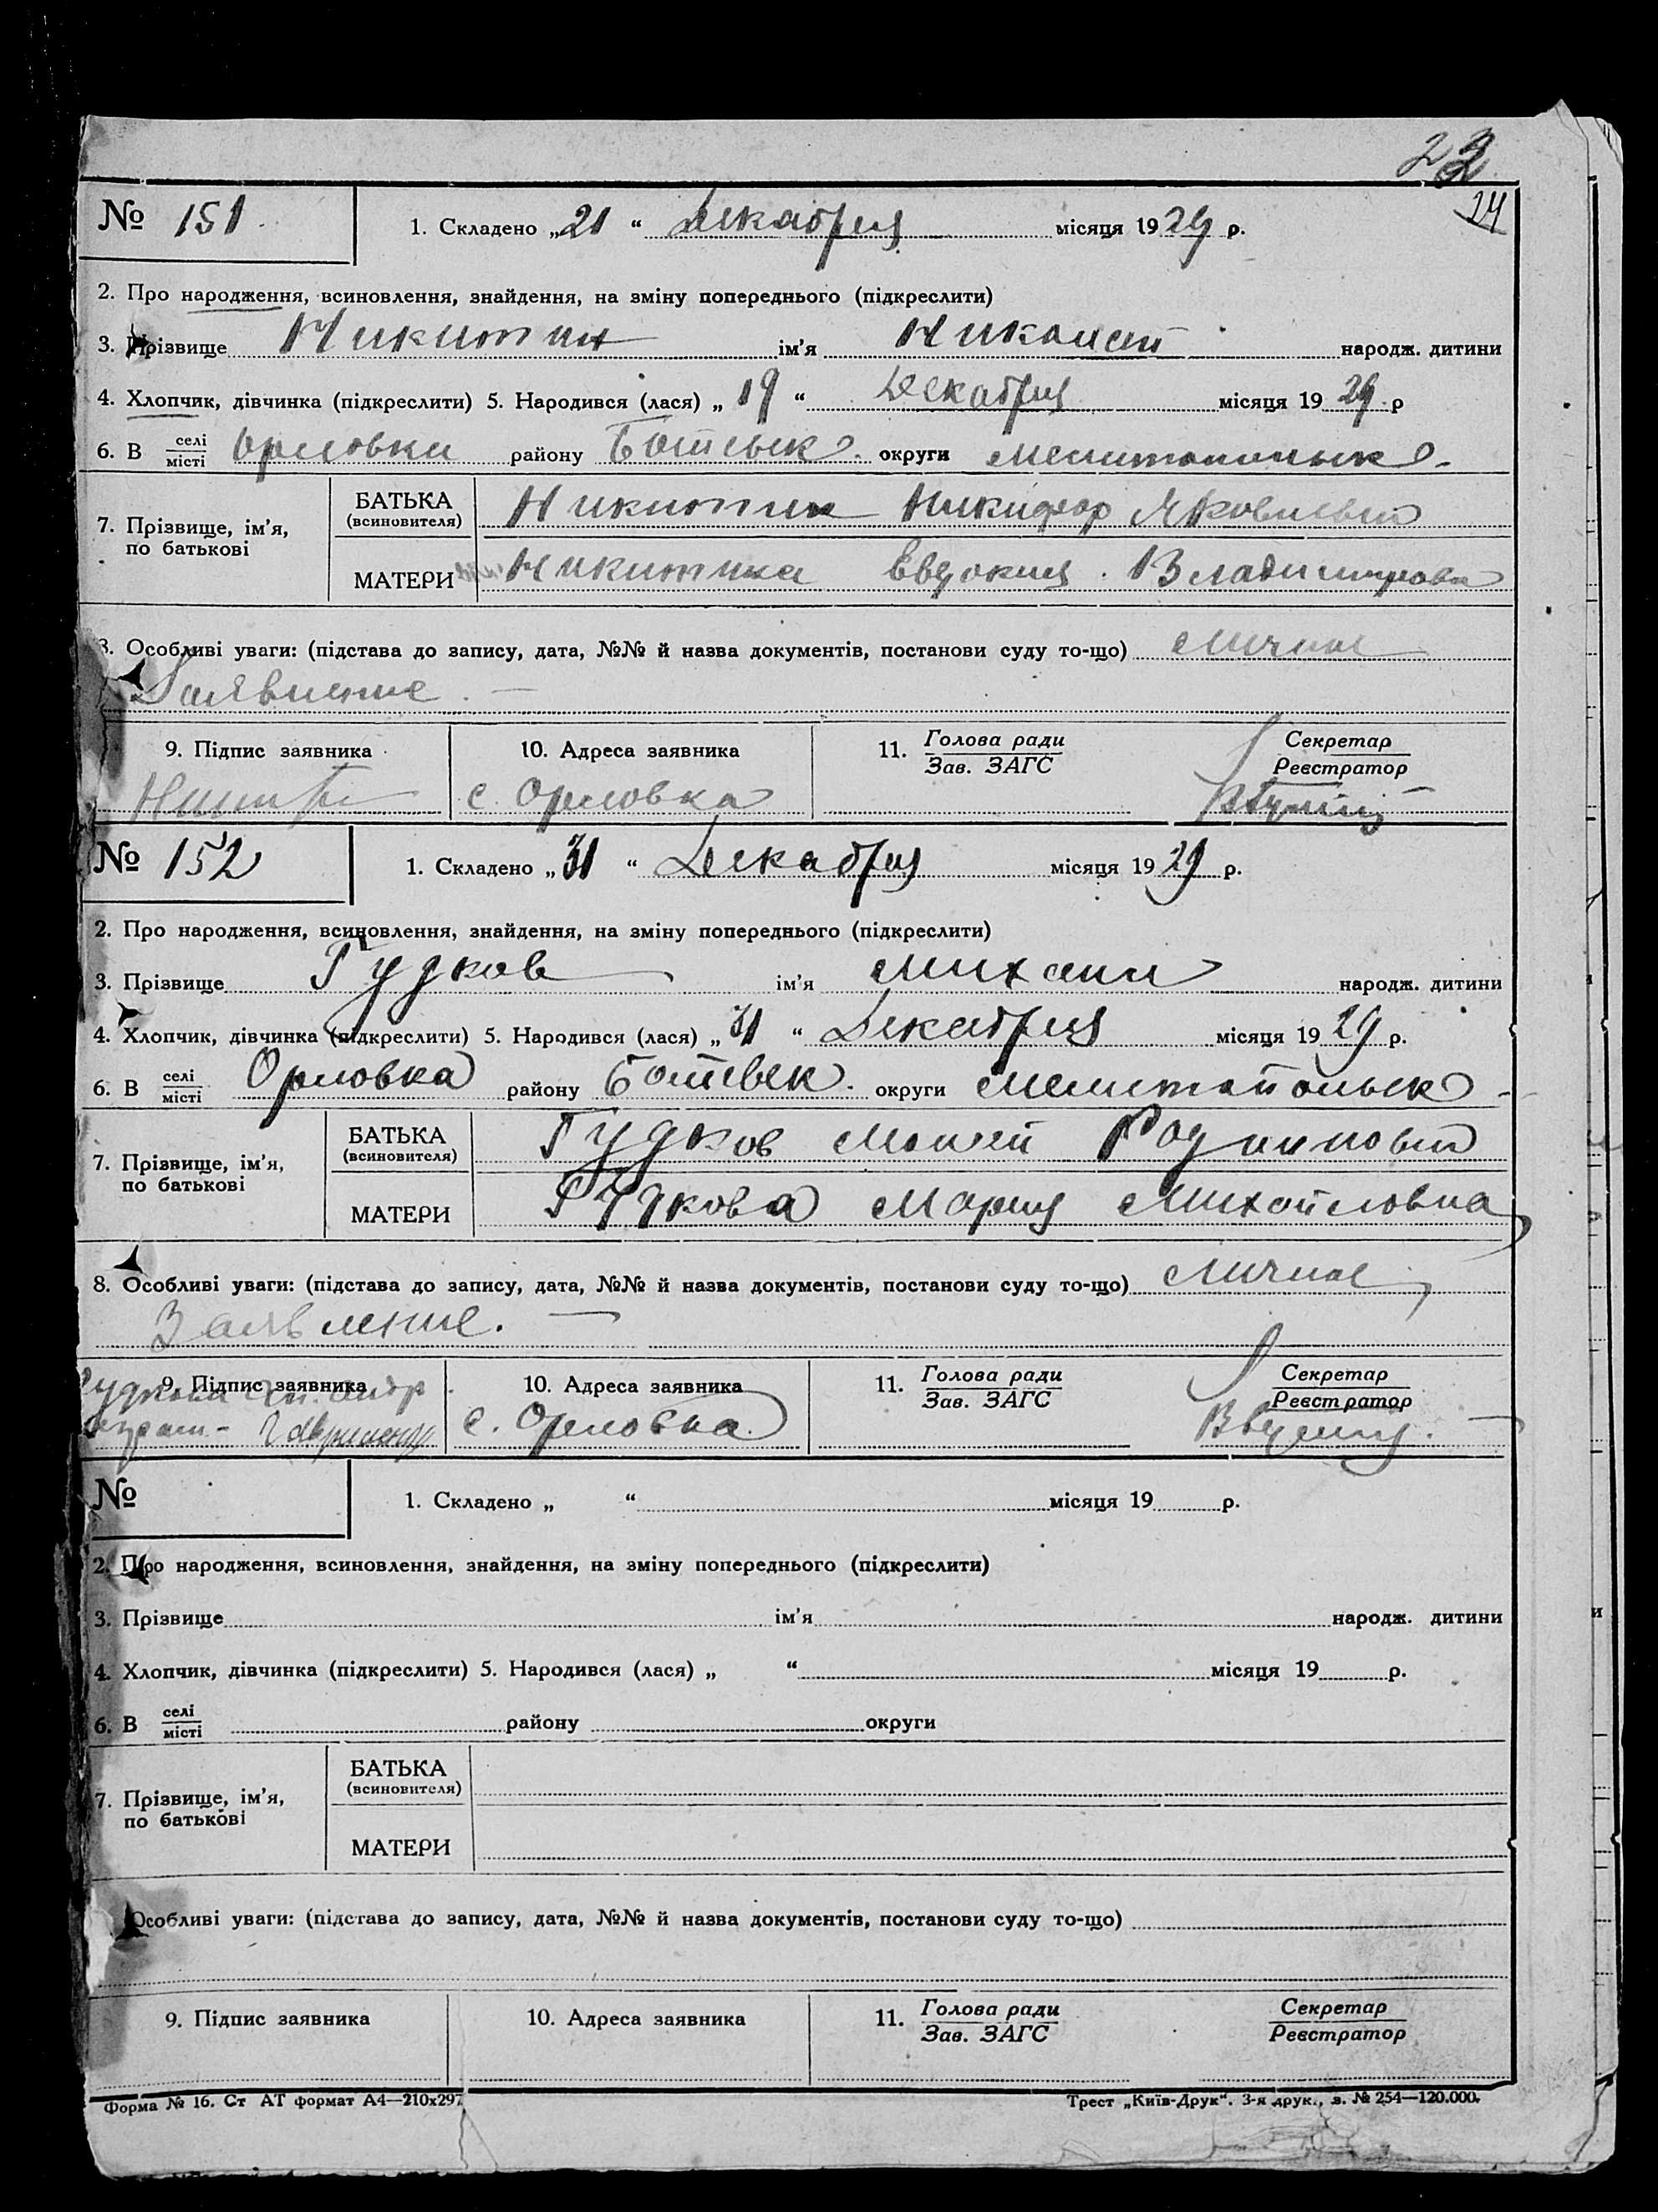 № 151. 1. Складено „21“ Декабря місяця 1929 р. 24
2. Про народження, всиновлення, знайдення, на зміну попереднього (підкреслити)
3. Прізвище Никитин ім'я Николай народж. дитини
4. Хлопчик, дівчинка (підкреслити) 5. Народився (лася) „19“ Декабря місяця 1929 р
6. В селі місті Орловки району Ботьевск. округи Мелитопольск.
7. Прізвище, ім'я, по батькові
БАТЬКА (всиновителя) Никитин Никифор Яковлевич
МАТЕРИ Никитина Евдокия Владимировна
8. Особливі уваги: (підстава до запису, дата, №№ й назва документів, постанови суду то-що) личное
Заявление. —
9. Підпис заявника 10. Адреса заявника 11. Голова ради Зав. ЗАГС Секретар Реєстратор
с. Орловка
№ 152 1. Складено „31“ Декабря місяця 1929 р.
2. Про народження, всиновлення, знайдення, на зміну попереднього (підкреслити)
3. Прізвище Гудков ім'я Михаил народж. дитини
4. Хлопчик, дівчинка (підкреслити) 5. Народився (лася) „31“ Декабря місяця 1929 р.
6. В селі місті Орловка району Ботевск. округи Мелитопольск.
7. Прізвище, ім'я, по батькові
БАТЬКА (всиновителя) Гудков Родионович
МАТЕРИ Гудкова Мария Михайловна
8. Особливі уваги: (підстава до запису, дата, №№ й назва документів, постанови суду то-що) личное
Заявление. —
9. Підпис заявника 10. Адреса заявника 11. Голова ради Зав. ЗАГС Секретар Реєстратор
с. Орловка
№ 1. Складено „ “ місяця 19 р.
2. Про народження, всиновлення, знайдення, на зміну попереднього (підкреслити)
3. Прізвище ім'я народж. дитини
4. Хлопчик, дівчинка (підкреслити) 5. Народився (лася) „ “ місяця 19 р.
6. В селі місті району округи
7. Прізвище, ім'я, по батькові
БАТЬКА (всиновителя)
МАТЕРИ
Особливі уваги: (підстава до запису, дата, №№ й назва документів, постанови суду то-що)
9. Підпис заявника 10. Адреса заявника 11. Голова ради Зав. ЗАГС Секретар Реєстратор
Форма № 16. Ст АТ формат А4—210х297 Трест „Київ-Друк“. 3-я друк., з. № 254—120.000.